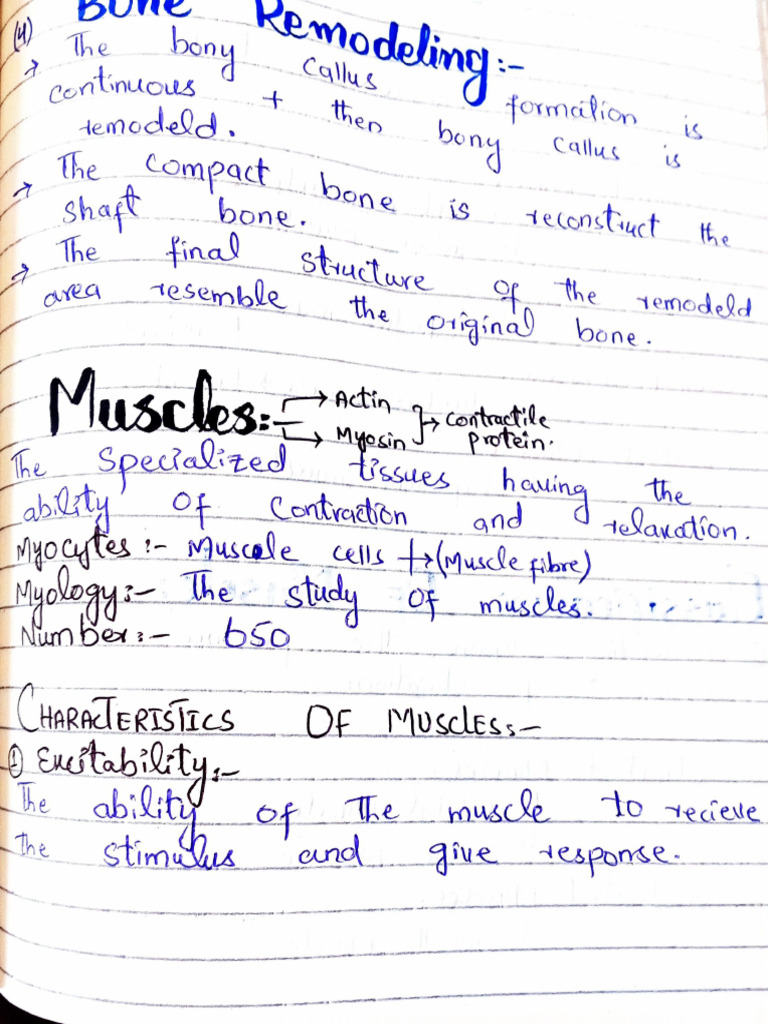 (4) Bone Remodeling:-
→ The bony callus formation is
continuous + then bony callus is
remodeld.
→ The compact bone is reconstruct the
shaft bone.
→ The final structure of the remodeld
area resemble the original bone.
Muscles:- → Actin → Myosin } → contractile protein.
The specialized tissues having the
ability of contraction and relaxation.
Myocytes:- Muscle cells → (Muscle fibre)
Myology:- The study of muscles.
Number:- 650
CHARACTERISTICS OF MUSCLES:-
① Excitability:-
The ability of the muscle to recieve
the stimulus and give response.